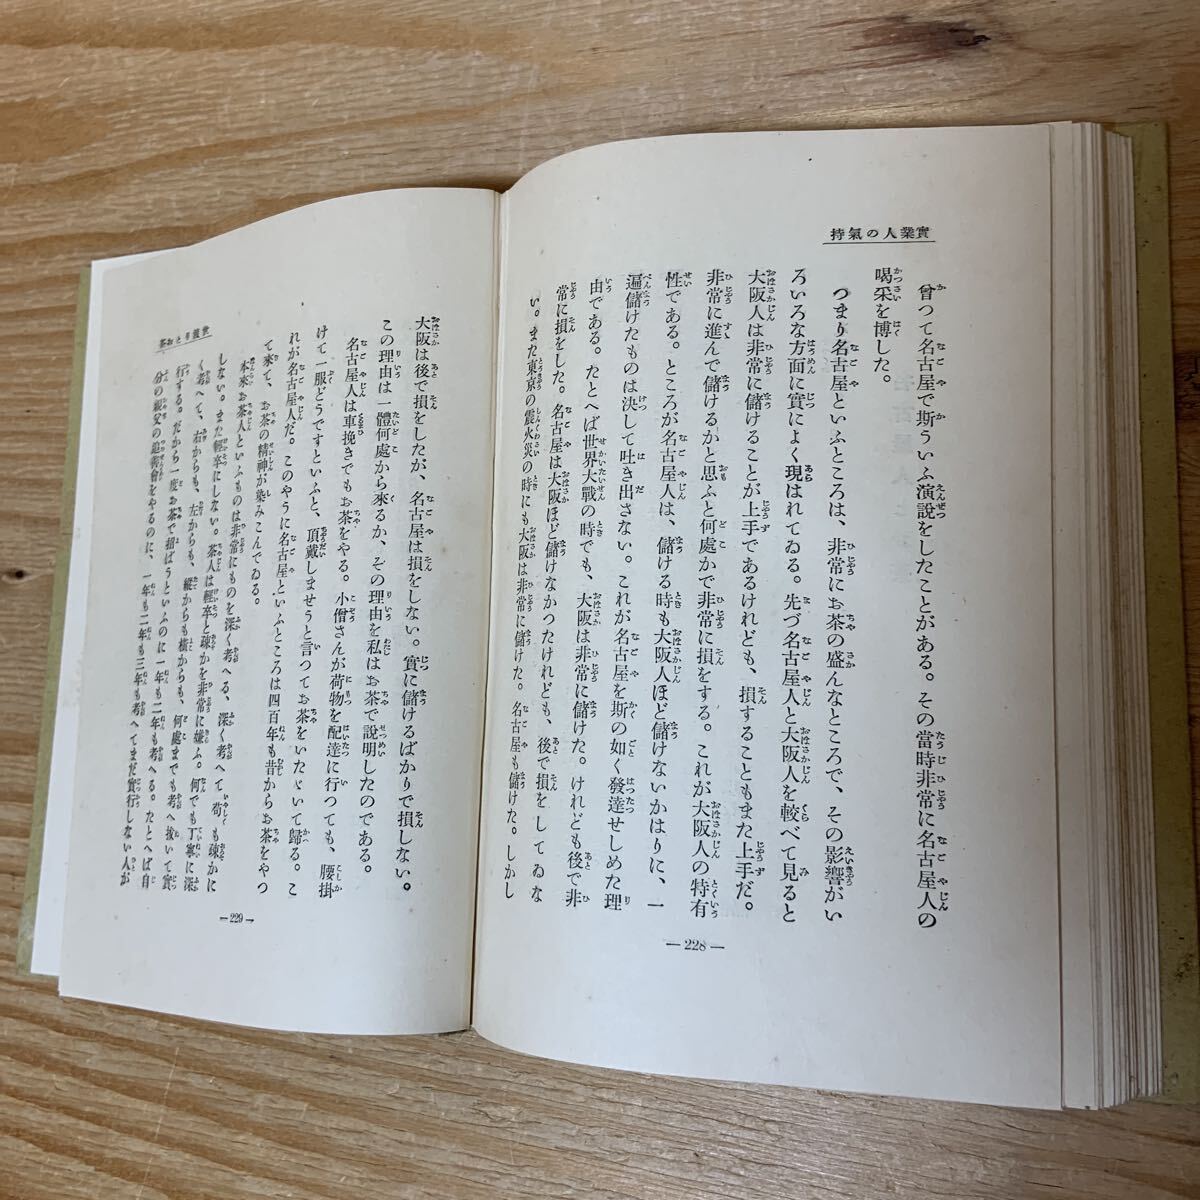 實業人の氣持
曾つて名古屋で斯ういふ演說をしたことがある。その當時非常に名古屋人の
喝采を博した。
つまり名古屋といふところは、非常にお茶の盛んなところで、その影響がい
ろいろな方面に實によく現はれてゐる。先づ名古屋人と大阪人を較べて見ると
大阪人は非常に儲けることが上手であるけれども、損することもまた上手だ。
非常に進んで儲けるかと思ふと何處かで非常に損をする。これが大阪人の特有
性である。ところが名古屋人は、儲ける時も大阪人ほど儲けないかはりに、一
遍儲けたものは決して吐き出さない。これが名古屋を斯の如く發達せしめた理
由である。たとへば世界大戰の時でも、大阪は非常に儲けた。けれども後で非
常に損をした。名古屋は大阪ほど儲けなかつたけれども、後で損をしてゐな
い。また東京の震火災の時にも大阪は非常に儲けた。名古屋も儲けた。しかし
—228—
大阪は後で損をしたが、名古屋は損をしない。實に儲けるばかりで損しない。
この理由は一體何處から來るか、その理由を私はお茶で說明したのである。
名古屋人は車挽きでもお茶をやる。小僧さんが荷物を配達に行つても、腰掛
けて一服どうですといふと、頂戴しませうと言つてお茶をいたゞいて歸る。こ
れが名古屋人だ。このやうに名古屋といふところは四百年も昔からお茶をやつ
て來て、お茶の精神が染みこんでゐる。
本來お茶人といふものは非常にものを深く考へる、深く考へて苟も疎かに
しない。また輕卒にしない。茶人は輕卒と疎かを非常に嫌ふ。何でも丁寧に深
く考へて、右からも、左からも、縱からも橫からも、何處までも考へ拔いて實
行する。だから一度お茶で招ばうといふのに一年も二年も考へる。たとへば自
分の親父の追善會をやるのに、一年も二年も三年も考へてまだ實行しない人が
—229—